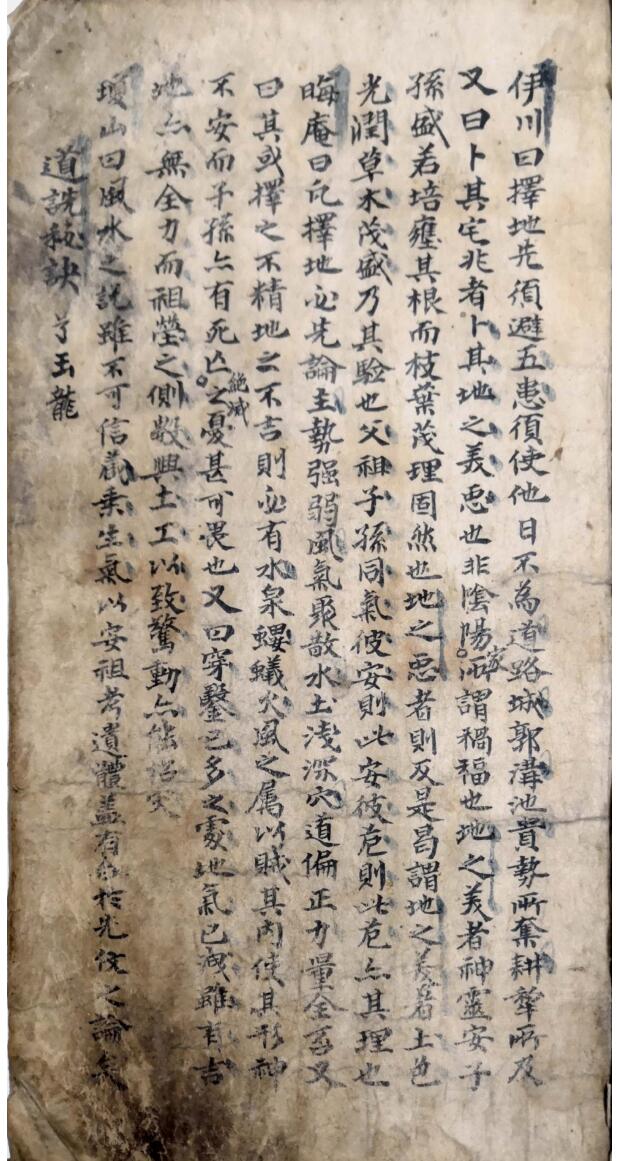 伊川曰擇地先須避五患須使他日不為道路城郭溝池貴勢所奪耕犂所及
又曰卜其宅兆者卜其地之美惡也非陰陽家所謂禍福也地之美者神靈安子
孫盛若培壅其根而枝葉茂理固然也地之惡者則反是曷謂地之美者土色
光潤草木茂盛乃其驗也父祖子孫同氣彼安則此安彼危則此危亦其理也
晦庵曰凡擇地必先論主勢强弱風氣聚散水土淺深穴道偏正力量全否又
曰其或擇之不精地之不吉則必有水泉螻蟻火風之屬以賊其內使其形神
不安而子孫亦有死亡絶滅之憂甚可畏也又曰穿鑿已多之處地氣已洩雖有吉
地亦無全力而祖塋之側數興土工以致驚動亦能招灾
瓊山曰風水之說雖不可信然乘生氣以安祖考遺體蓋有合於先儒之論矣
道詵秘訣 玉龍